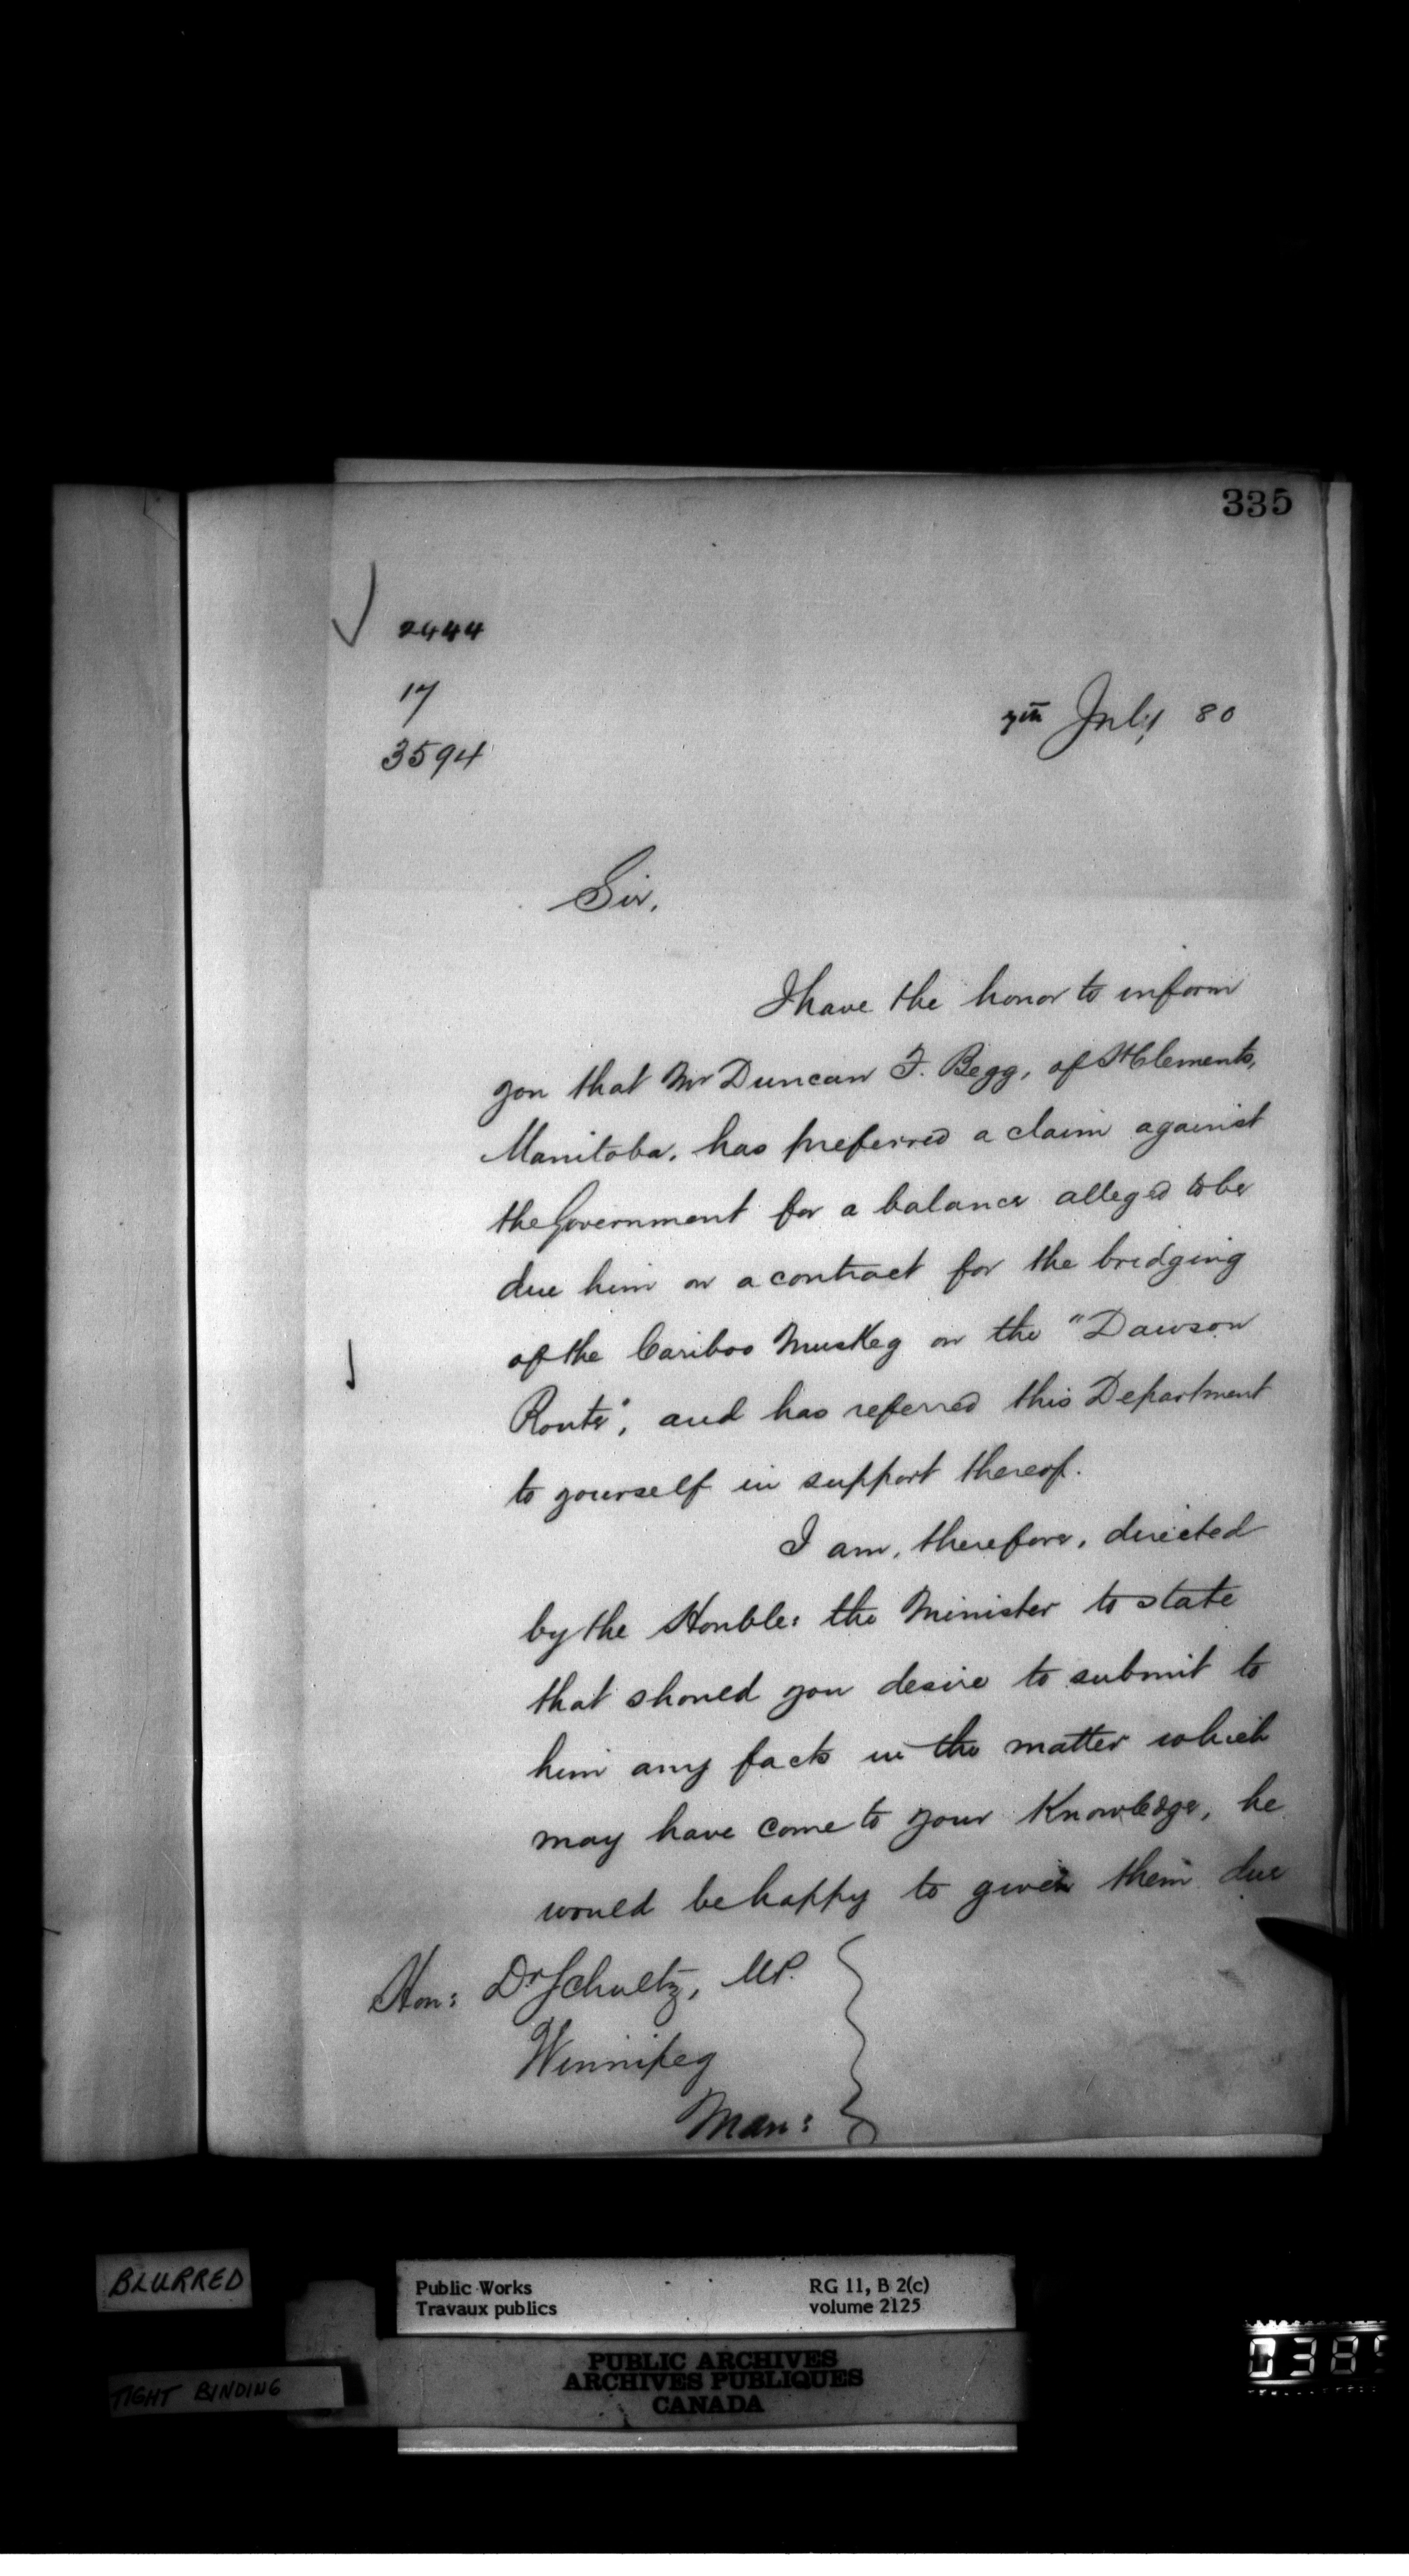 335
2444
17
3594
7th July 80
Sir,
I have the honor to inform
you that Mr Duncan F. Begg, of St Clements,
Manitoba, has preferred a claim against
the Government for a balance alleged to be
due him on a contract for the bridging
of the Cariboo Muskeg on the "Dawson
Route", and has referred this Department
to yourself in support thereof.
I am, therefore, directed
by the Honble: the Minister to state
that should you desire to submit to
him any facts in the matter which
may have come to your Knowledge, he
would be happy to give them due
Hon: Dr Schultz, M.P.
Winnipeg
Man:
BLURRED
TIGHT BINDING
Public Works
Travaux publics
RG 11, B 2(c)
volume 2125
PUBLIC ARCHIVES
ARCHIVES PUBLIQUES
CANADA